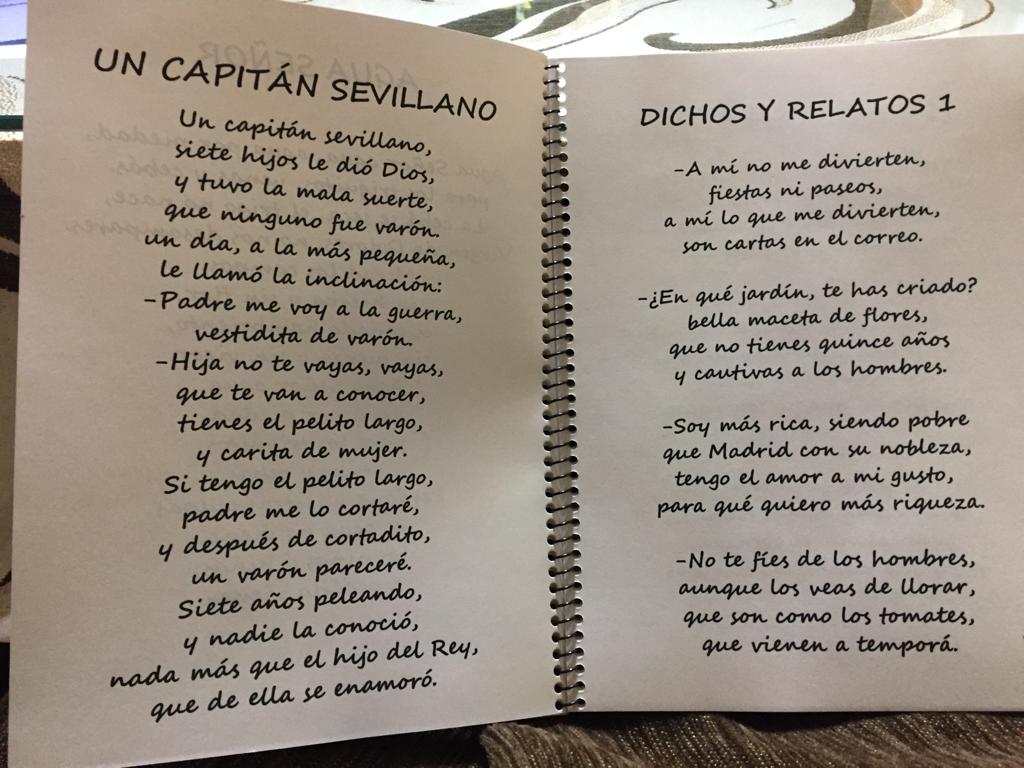 UN CAPITÁN SEVILLANO
Un capitán sevillano,
siete hijos le dió Dios,
y tuvo la mala suerte,
que ninguno fue varón.
un día, a la más pequeña,
le llamó la inclinación:
-Padre me voy a la guerra,
vestidita de varón.
-Hija no te vayas, vayas,
que te van a conocer,
tienes el pelito largo,
y carita de mujer.
Si tengo el pelito largo,
padre me lo cortaré,
y después de cortadito,
un varón pareceré.
Siete años peleando,
y nadie la conoció,
nada más que el hijo del Rey,
que de ella se enamoró.
DICHOS Y RELATOS 1
-A mí no me divierten,
fiestas ni paseos,
a mí lo que me divierten,
son cartas en el correo.
-¿En qué jardín, te has criado?
bella maceta de flores,
que no tienes quince años
y cautivas a los hombres.
-Soy más rica, siendo pobre
que Madrid con su nobleza,
tengo el amor a mi gusto,
para qué quiero más riqueza.
-No te fíes de los hombres,
aunque los veas de llorar,
que son como los tomates,
que vienen a temporá.